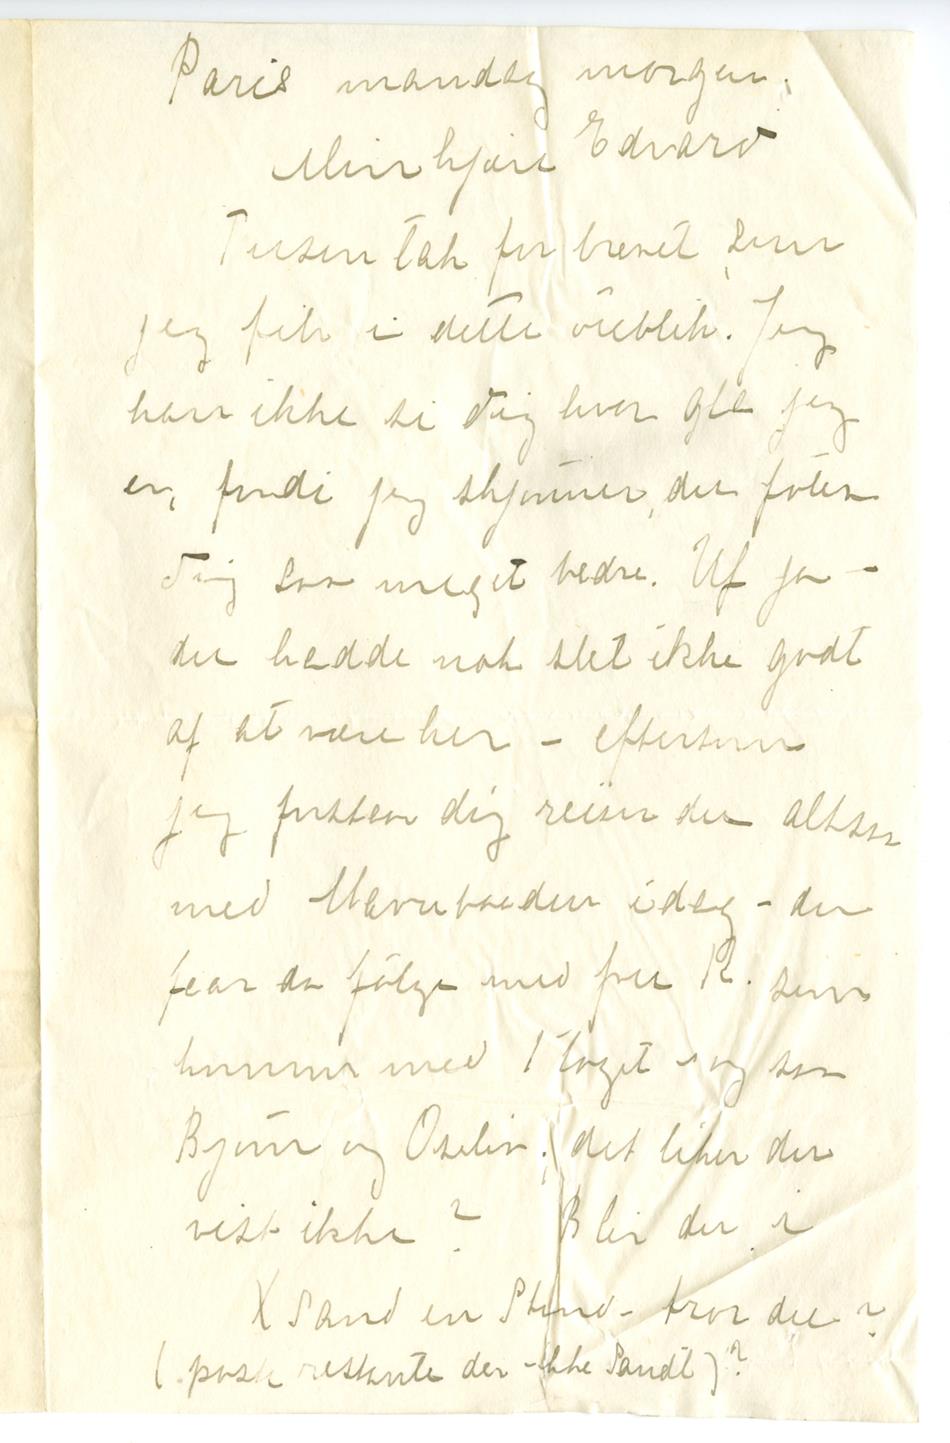 Paris mandag morgen.
Min kjære Edvard
Tusen tak for brevet, som
jeg fik i dette öieblik. Jeg
kan ikke si dig hvor gla jeg
er, fordi jeg skjönner, du föler
dig saa meget bedre. Uf ja –
du hadde nok slet ikke godt
af at være her – eftersom
jeg forstaar dig reiser du altsaa
med Havrebaaden idag – du
faar da fölge med fru R. som
kommer med 1 toget – og saa
Björn og Oselio. det liker du
vist ikke? Blir du i
X Sand en Stund – tror du?
(poste restante der – ikke Sandt)?